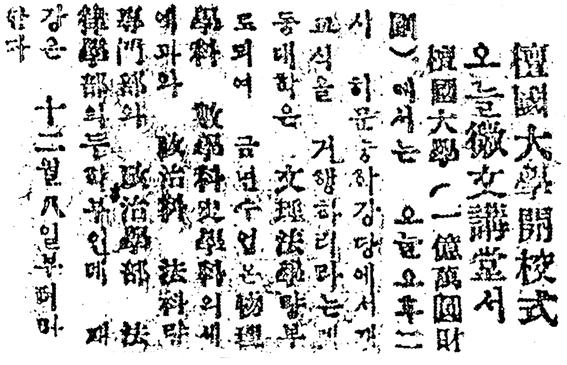 檀國大學開校式
오늘徽文講堂서
檀國大學(一億萬圓財
團)에서는 오늘오후二
시 휘문중학강당에서개
교식을 거행하리라는데
동대학은 文理法學량부
로되여 금년수업은物理
學科 數學科史學科의세
예과와 政治科 法科량
專門部와 政治學部 法
律學部의두학부인데 개
강은 十二月八일부터머
한다